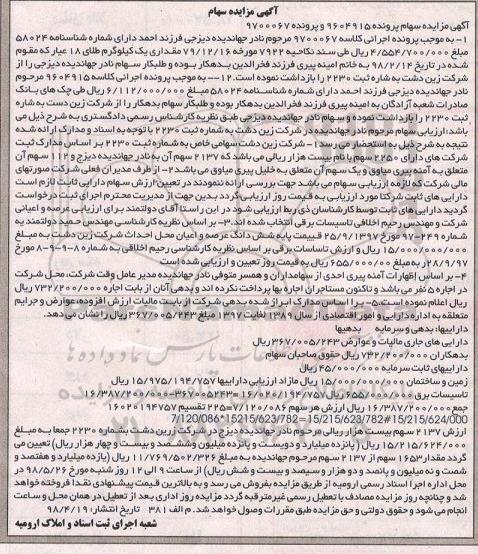 آگهی مزایده سهام
آگهی مزایده سهام پرونده ۹۶۰۴۹۱۵ و پرونده ۹۷۰۰۰۶۷
۱- به موجب پرونده اجرائی کلاسه ۹۷۰۰۰۶۷ مرحوم نادر جهاندیده دیزجی فرزند احمد دارای شماره شناسنامه ۵۸۰۲۴
مبلغ ۴/۵۵۴/۷۰۰/۰۰۰ ریال طی سند نکاحیه ۷۹۲۲ مورخه ۷۹/۱۲/۱۶ مقداری یک کیلوگرم طلای ۱۸ عیار که مقوم
شده در تاریخ ۹۸/۲/۱۴ به خانم امینه پیری فرزند فخرالدین بدهکار بوده و طلبکار سهام نادر جهاندیده دیزجی را از
شرکت زین دشت به شاره ثبت ۲۲۳۰ را بازداشت نموده است. ۱۲-- به موجب پرونده اجرائی کلاسه ۹۶۰۴۹۱۵ مرحوم
نادر جهاندیده دیزجی فرزند احمد دارای شماره شناسنامه ۵۸۰۲۴ مبلغ ۶/۱۱۲/۰۰۰/۰۰۰ ریال طی چک های بانک
صادرات شعبه آزادگان به امینه پیری فرزند فخرالدین بدهکار بوده و طلبکار سهام بدهکار را از شرکت زین دست به شاره
ثبت ۲۲۳۰ را بازداشت نموده و سهام نادر جهاندیده دیزجی طبق نظریه کارشناس رسمی دادگستری به شرح ذیل می
باشد: ارزیابی سهام مرحوم نادر جهاندیده در شرکت زین دشت به شماره ثبت ۲۲۳۰ با توجه به اسناد و مدارک ارائه شده
نتیجه به شرح ذیل به استحضار میرسد: ۱ - شرکت زین دشت سهامی خاص به شماره ثبت ۲۲۳۰ بر اساس مدارک ثبت
شرکت های دارای ۲۲۵۰ سهم با نام بیست هزار ریالی می باشد که ۲۱۳۷ سهم آن به نادر جهاندیده دیزج و ۱۱۲ سهم آن
متعلق به آمنه پیری میاوق و یک سهم آن متعلق به خلیل پیری میاوق می باشد ۲- از طرف مدیران فعلی شرکت صورتهای
مالی شرکت که لازمه ارزیابی سهام می باشد جهت بررسی ارائه ننمودند در تعیین ارزش سهام دارایی ثابت لازم است
دارایی های ثابت شرکتا مورد ارزیابی به قیمت روز ارزیابی گردد بدین جهت از مدیریت محترم اجرای ثبت درخواست
گردید دارایی های ثابت توسط کارشناسان ذی ربط ارزیابی شود در این راستا آقای دولتمند برای ارزیابی عرصه و اعیانی
شرکت و مهندس رحیم اخلاقی تاسیسات برقی انتخاب شده اند. ۳- بر اساس نظریه کارشناسی مهندس حمید دولتمند به
شماره ۲۴۹-۹۷ مورخ ۲۵/۹/۱۳۹۷ قیمت پایه شش دانگ عرصه و اعیان محل احداث شرکت زین دشت به مبلغ
۱۵/۰۰۰/۰۰۰/۰۰۰ ریال و ارزش تاسیسات برقی بر اساس نظریه کارشناسی رحیم اخلاقی به شماره ۸-۹-۹-۸ مورخ
۲۸/۹/۹۷ به مبلغ ۶۵۵/۰۰۰/۰۰۰ ریال به قیمت روز تعیین و ارزیابی شده است
۴- بر اساس اظهارات آمنه پیری احدی از سهامداران و همسر متوفی نادر جهاندیده مدیر عامل وقت شرکت، محل شرکت
در اجاره ۵ نفر می باشد و تاکنون مستاجران اجاره بها پرداخت نکرده اند و بدهی آنان از بابت اجاره ۷۳۲/۲۰۰/۰۰۰
ریال اعلام نموده است. ۵- بر اساس مدارک ابراز شده بدهی شرکت از بابت مالیات ارزش افزوده عوارض و جرایم
متعلقه به اداره دارایی و امور اقتصادی از سال ۱۳۸۹ لغایت ۱۳۹۷ مبلغ ۳۶۷/۰۰۵/۲۴۳ ریال را نشان می دهد.
داراییها: بدهی و سرمایه بدهیها
دارایی های جاری مالیات و عوارض ۳۶۷/۰۰۵/۲۴۳ ریال
بدهکاران ۷۳۲/۲۰۰/۰۰۰ ریال حقوق صاحبان سهام
داراییهای ثابت سرمایه ۴۵/۰۰۰/۰۰۰ ریال
زمین و ساختمان ۱۵/۰۰۰/۰۰۰/۰۰۰ ریال مازاد ارزیابی داراییها ۱۵/۹۷۵/۱۹۴/۷۵۷ ریال
تاسیسات برق ۶۵۵/۰۰۰/۰۰۰ ریال ۱۶/۰۲۰/۱۹۴/۷۵۷=۳۶۷۰۰۵۲۴۳-۱۶/۳۸۷/۲۰۰/۰۰۰
جمع ۱۶/۳۸۷/۲۰۰/۰۰۰ ریال ارزش هر سهم ۷/۱۲۰/۰۸۶=۲۲۵ تقسیم ۱۶۰۲۰۱۹۴۷۵۷
7/120/086*15215/623/782=15/215/623/782#15/215/624/000
ارزش ۲۱۳۷ سهم بیست هزار ریالی مرحوم نادر جهاندیده دیزج در شرکت زرین دشت بشماره ۲۲۳۰ جمعا به مبلغ
۱۵/۲۱۵/۶۲۴/۰۰۰ ریال (پانزده میلیارد و دویست و پانزده میلیون وششصد و بیست و چهار هزار ریال) تعیین می
گردد مقدار ۱۶۵۳ سهم از ۲۱۳۷ سهم مرحوم جهاندیده به مبلغ ۱۱/۷۶۹/۵۰۲/۳۲۶ ریال (یازده میلیارد و هفتصد و
شصت و نه میلیون و پانصد و دو هزار و سیصد و بیست و شش ریال) از ساعت ۹ الی ۱۲ روز شنبه مورخ ۹۸/۵/۲۶ در
محل اداره اجرا اسناد رسمی ارومیه از طریق مزایده بفروش می رسد و به بالاترین قیمت پیشنهادی نقدا فروخته خواهد
شد و چنانچه روز مزایده مصادف با تعطیل رسمی غیر مترقبه گردد مزایده روز اداری بعد از تعطیل در همان محل و ساعت
انجام می شود و حقوق دولتی و حق مزایده طبق مقررات وصول خواهد شد. م الف ۳۸۱ تاریخ انتشار: ۹۸/۴/۱۹
شعبه اجرای ثبت اسناد و املاک ارومیه